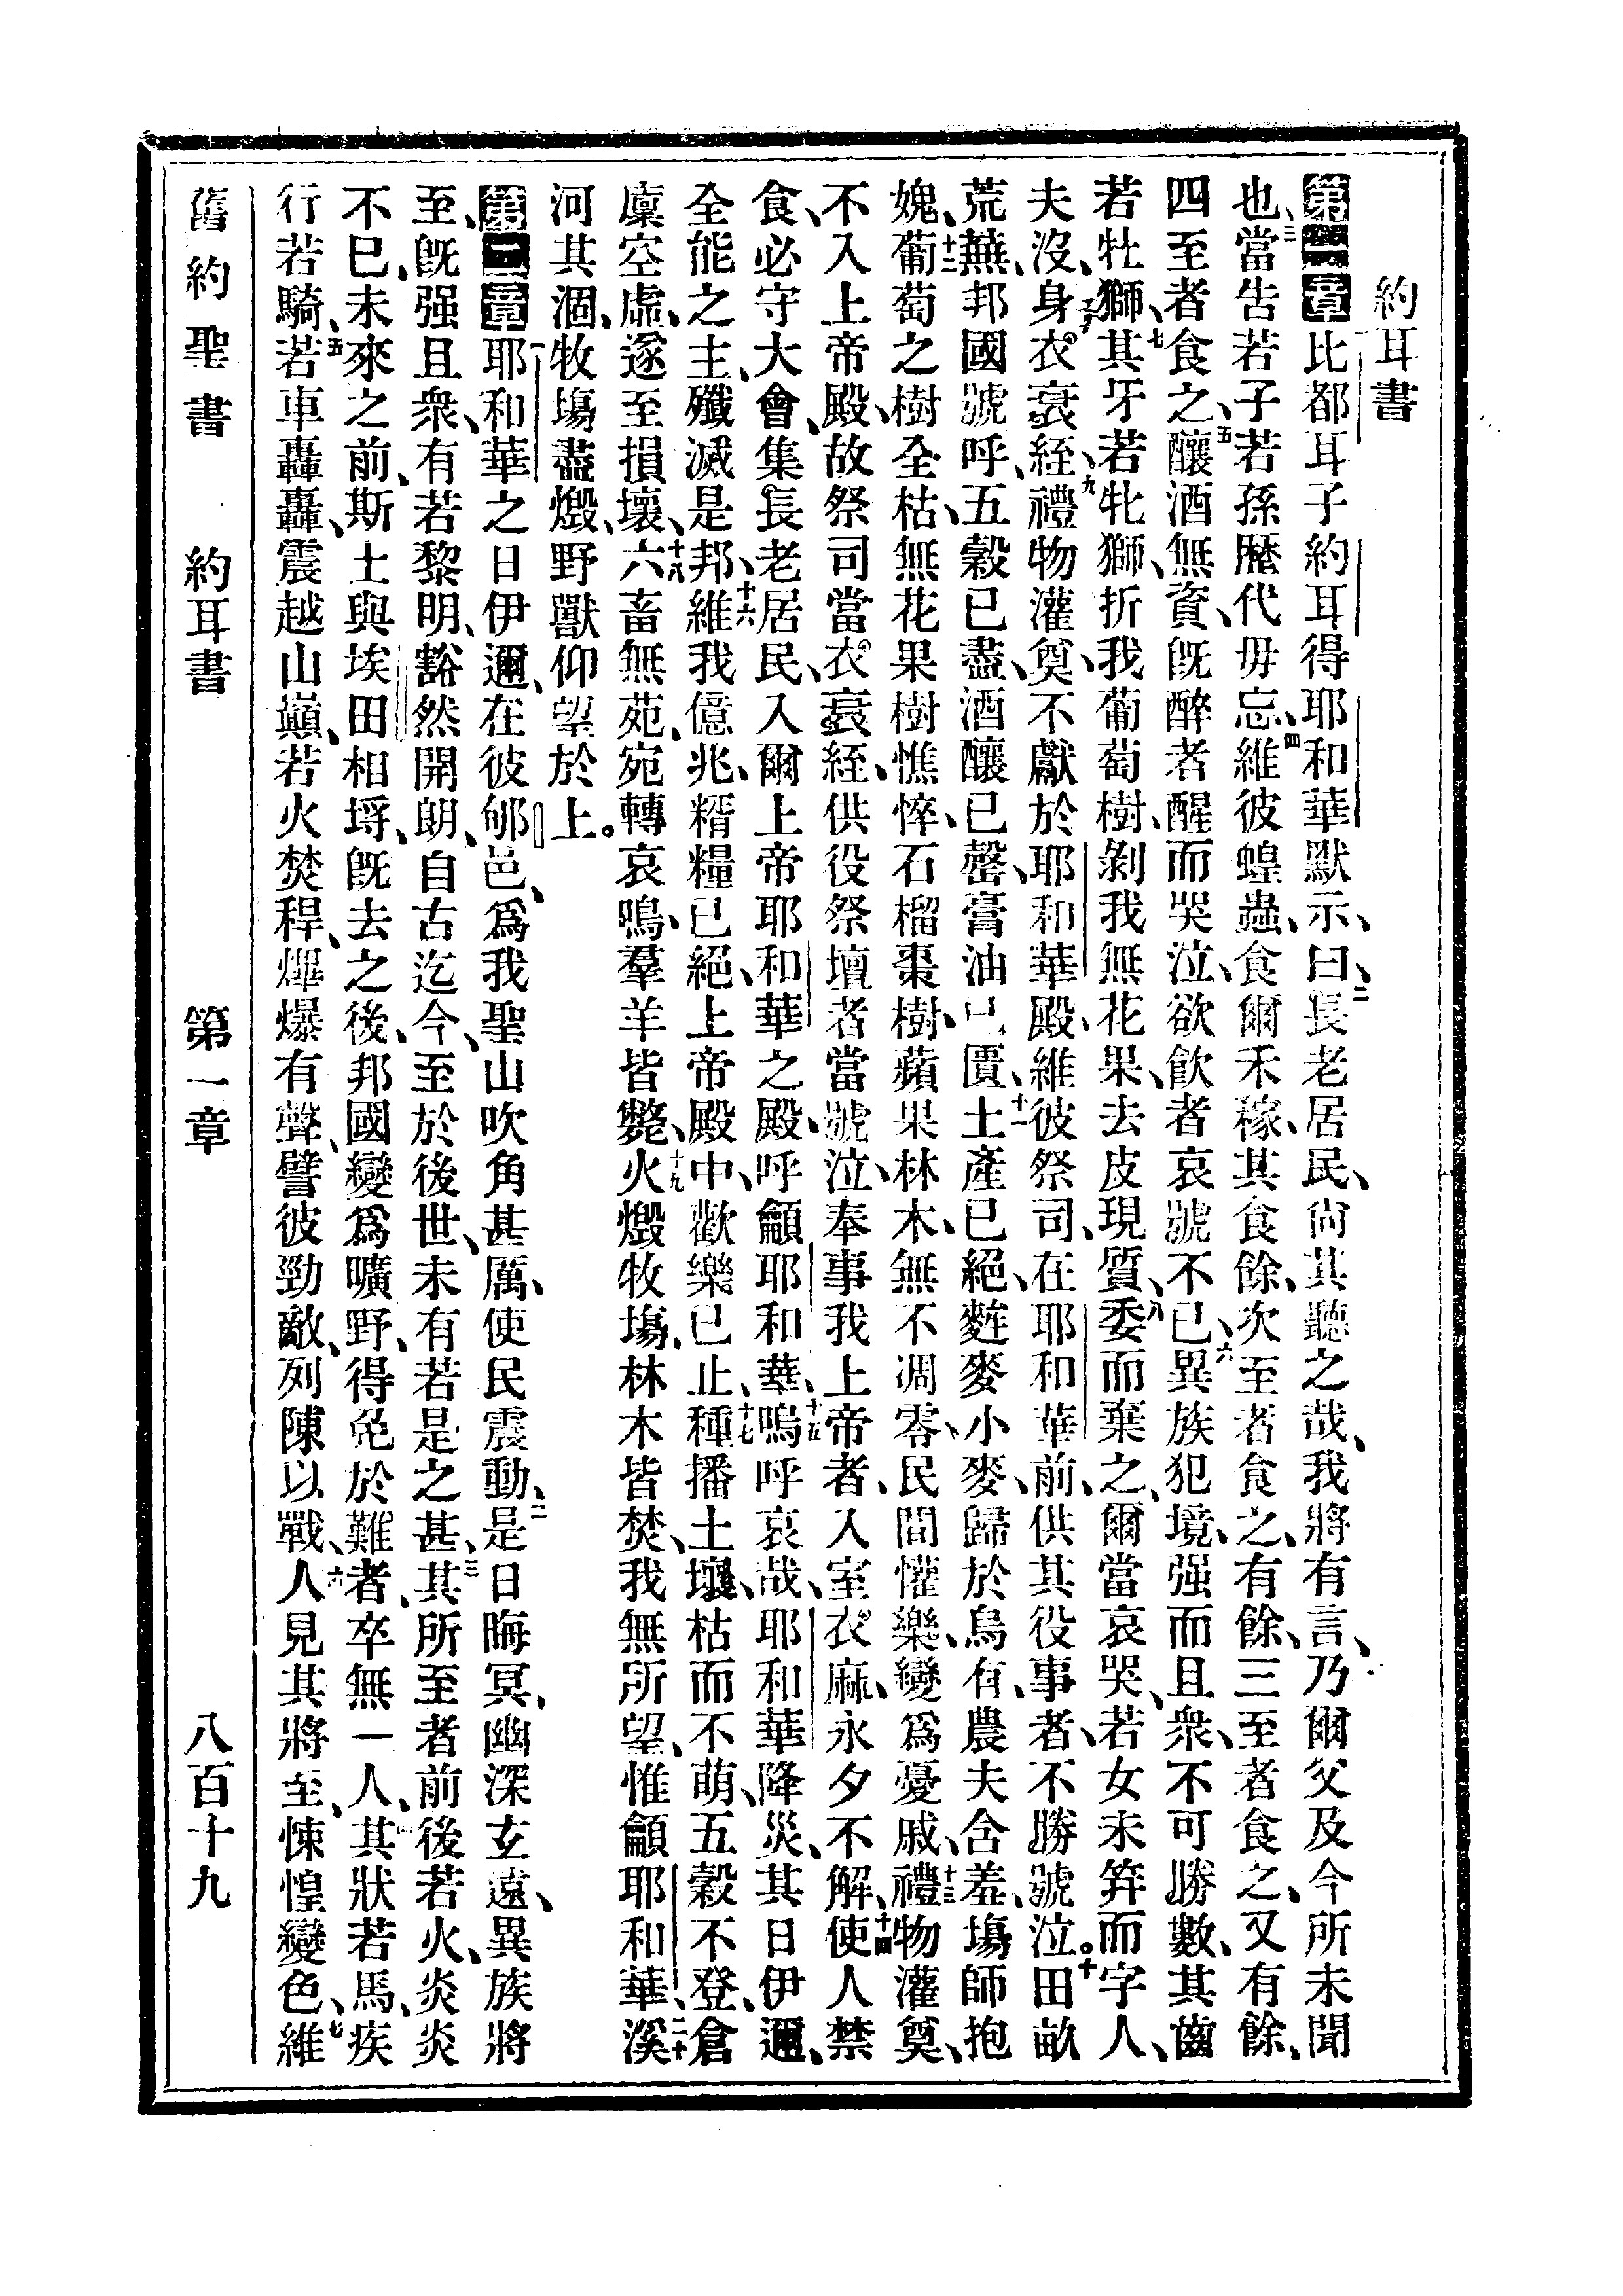 約耳書
第一章比都耳子約耳得耶和華默示、曰、二長老居民、尙其聽之哉、我將有言、乃爾父及今所未聞
也、三當告若子若孫、歷代毋忘、四維彼蝗蟲、食爾禾稼、其食餘、次至者食之、有餘、三至者食之、又有餘、
四至者食之、五釀酒無資、旣醉者醒而哭泣、欲飮者哀號不已、六異族犯境、强而且衆、不可勝數、其齒
若牡獅、七其牙若牝獅、折我葡萄樹、剝我無花果、去皮現質、八委而棄之、爾當哀哭、若女未笄而字人、
夫沒、身衣衰絰、九禮物灌奠、不獻於耶和華殿、維彼祭司、在耶和華前、供其役事者、不勝號泣。十田畝
荒蕪、邦國號呼、五穀已盡、酒釀已罄、膏油已匱、十一土產已絕、麰麥小麥、歸於烏有、農夫含羞、塲師抱
媿、十二葡萄之樹全枯、無花果樹憔悴、石榴棗樹、蘋果林木、無不凋零、民間懽樂、變爲憂戚、十三禮物灌奠、
不入上帝殿、故祭司當衣衰絰、供役祭壇者當號泣、奉事我上帝者、入室衣麻、永夕不解、十四使人禁
食、必守大會、集長老居民、入爾上帝耶和華之殿、呼籲耶和華、十五嗚呼哀哉、耶和華降災、其日伊邇、
全能之主、殲滅是邦、十六維我億兆、糈糧已絕、上帝殿中、歡樂已止、十七種播土壤、枯而不萌、五穀不登、倉
廩空虛、遂至損壞、十八六畜無苑、宛轉哀鳴、羣羊皆斃、十九火燬牧塲、林木皆焚、我無所望、惟籲耶和華、二十溪
河其涸、牧塲盡燬、野獸仰望於上。
第二章一耶和華之日伊邇、在彼郇邑、爲我聖山、吹角甚厲、使民震動、二是日晦冥、幽深玄遠、異族將
至、旣强且衆、有若黎明、豁然開朗、自古迄今、至於後世、未有若是之甚、三其所至者前後若火、炎炎
不已、未來之前、斯土與埃田相埒、旣去之後、邦國變爲曠野、得免於難者、卒無一人、四其狀若馬、疾
行若騎、五若車轟轟、震越山巔、若火焚稈、熚爆有聲、譬彼勁敵、列陳以戰、六人見其將至、悚惶變色、七維
舊約聖書　約耳書　第一章　八百十九